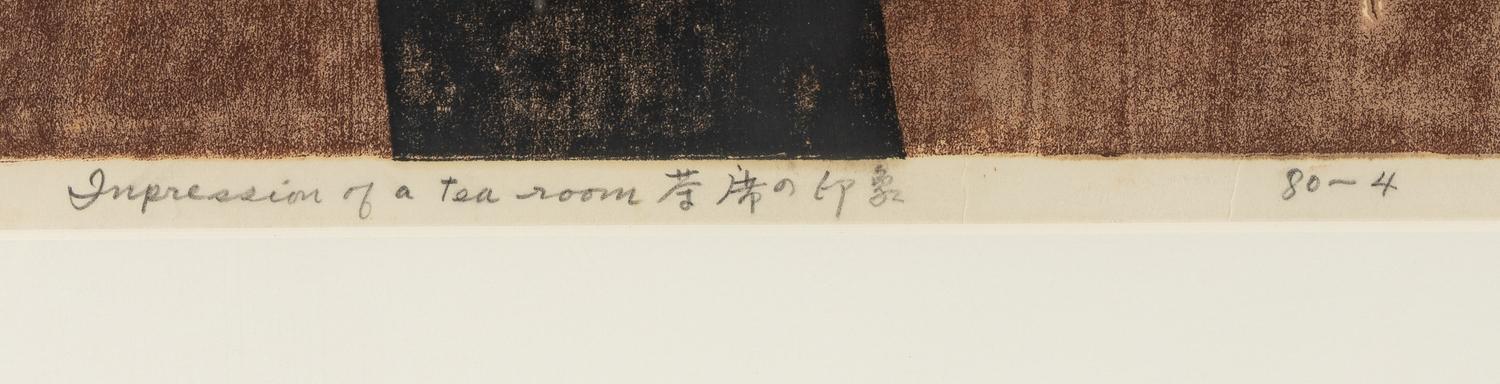 Inpression of a tea room 茶席の印象 80-4